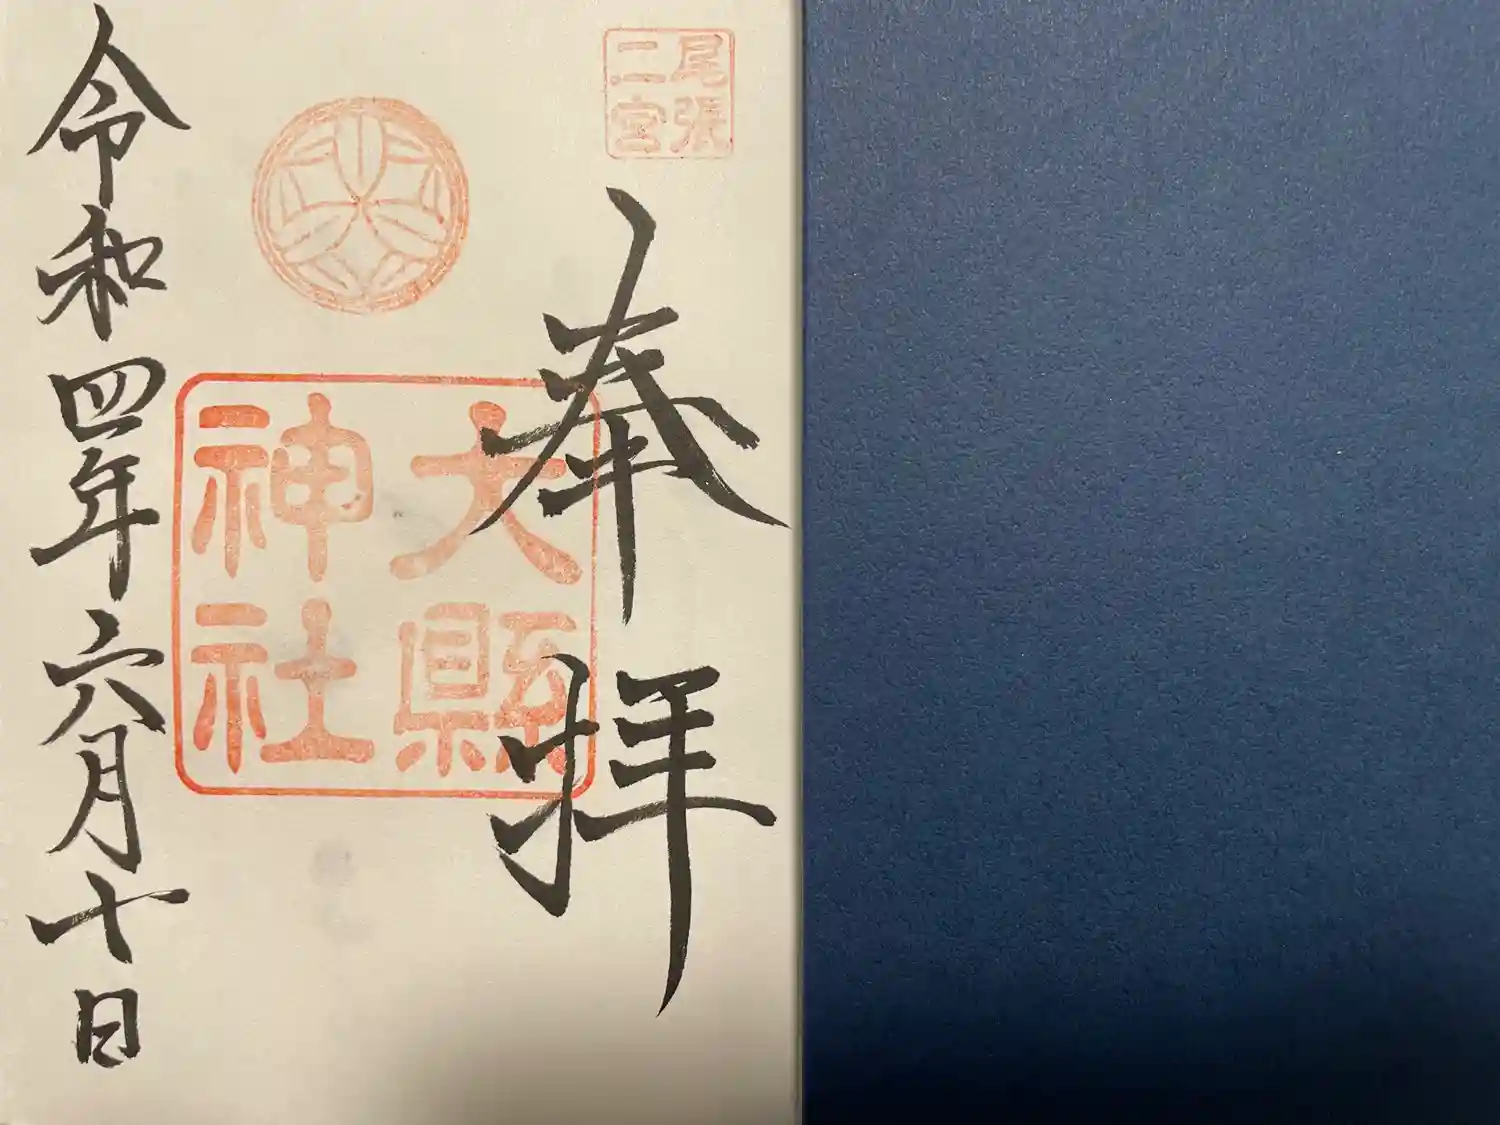 尾張
二宮
奉拝
大縣
神社
令和四年六月十日